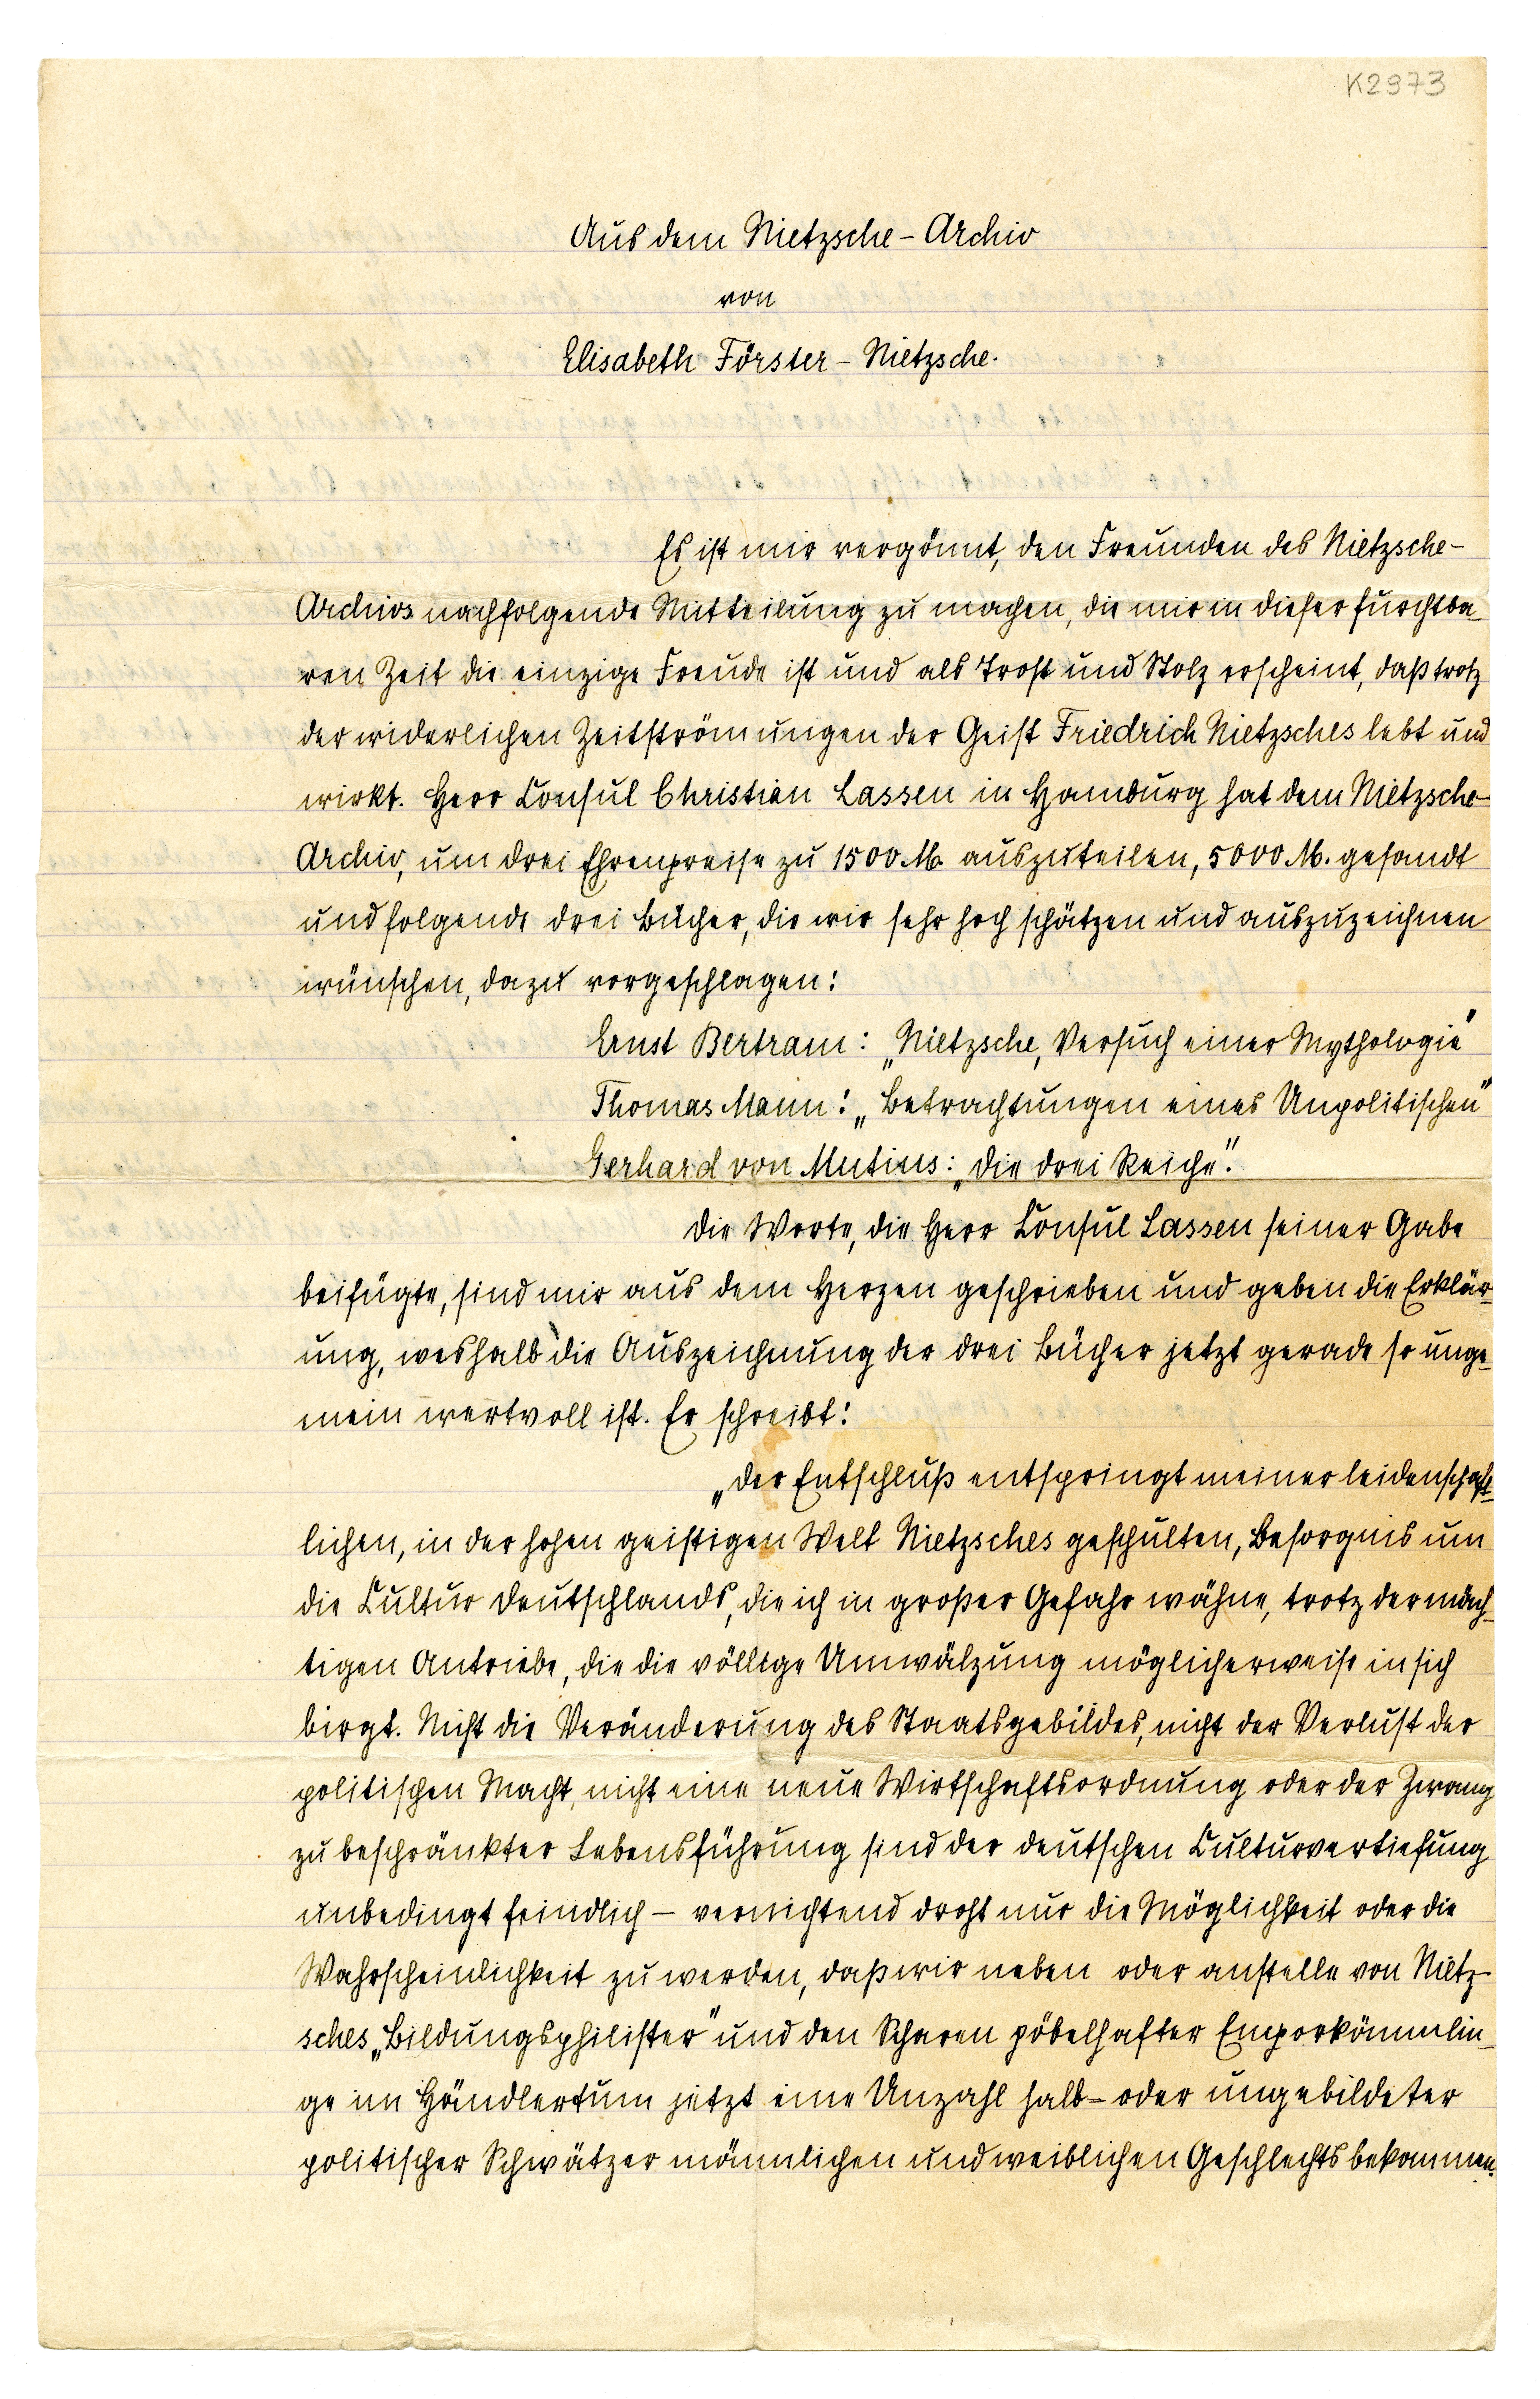 K2973
Aus dem Nietzsche-Archiv
von
Elisabeth Förster-Nietzsche.
Es ist mir vergönnt, den Freunden des Nietzsche-
Archivs nachfolgende Mitteilung zu machen, die mir in dieser furchtba-
ren Zeit die einzige Freude ist und als Trost und Stolz erscheint, daß trotz
der widerlichen Zeitströmungen der Geist Friedrich Nietzsches lebt und
wirkt. Herr Consul Christian Lassen in Hamburg hat dem Nietzsche-
Archiv, um drei Ehrenpreise zu 1500 M. auszuteilen, 5000 M. gesandt
und folgende drei Bücher, die wir sehr hoch schätzen und auszuzeichnen
wünschen, dazu vorgeschlagen:
Ernst Bertram: „Nietzsche, Versuch einer Mythologie"
Thomas Mann: „Betrachtungen eines Unpolitischen"
Gerhard von Mutius: „Die drei Reiche".
Die Worte, die Herr Consul Lassen seiner Gabe
beifügte, sind mir aus dem Herzen geschrieben und geben die Erklär-
ung, weshalb die Auszeichnung der drei Bücher jetzt gerade so unge-
mein wertvoll ist. Er schreibt:
„Der Entschluß entspringt meiner leidenschaft-
lichen, in der hohen geistigen Welt Nietzsches geschulten, Besorgnis um
die Cultur Deutschlands, die ich in großer Gefahr wähne, trotz der mäch-
tigen Antriebe, die die völlige Umwälzung möglicherweise in sich
birgt. Nicht die Veränderung des Staatsgebildes, nicht der Verlust der
politischen Macht, nicht eine neue Wirtschaftsordnung oder der Zwang
zu beschränkter Lebensführung sind der deutschen Culturvertiefung
unbedingt feindlich – vernichtend droht nur die Möglichkeit oder die
Wahrscheinlichkeit zu werden, daß wir neben oder anstelle von Nietz-
sches „Bildungsphilister" und den Scharen pöbelhafter Emporkömmlin-
ge im Händlertum jetzt eine Unzahl halb- oder ungebildeter
politischer Schwätzer männlichen und weiblichen Geschlechts bekommen.